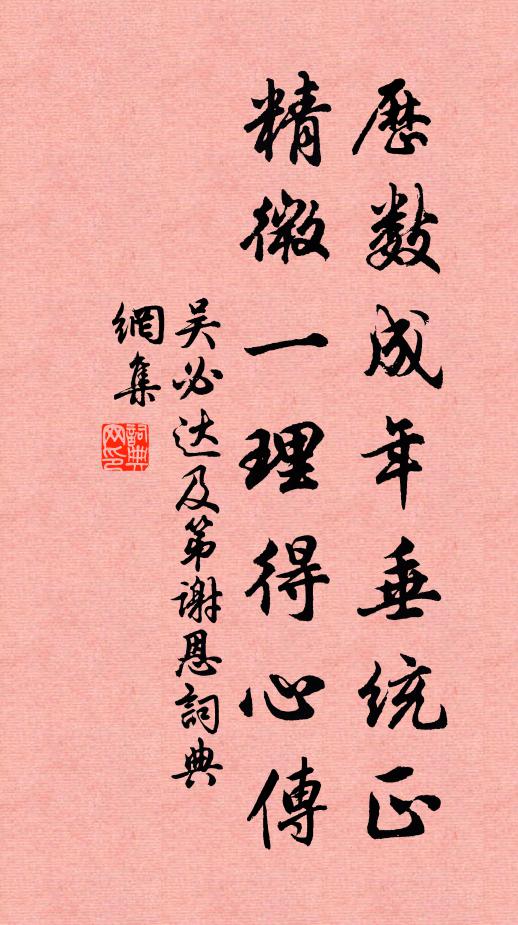 歷数成年垂統正
精微一理得心傳
吴必达及第謝恩詞典
網集
詞典
网印